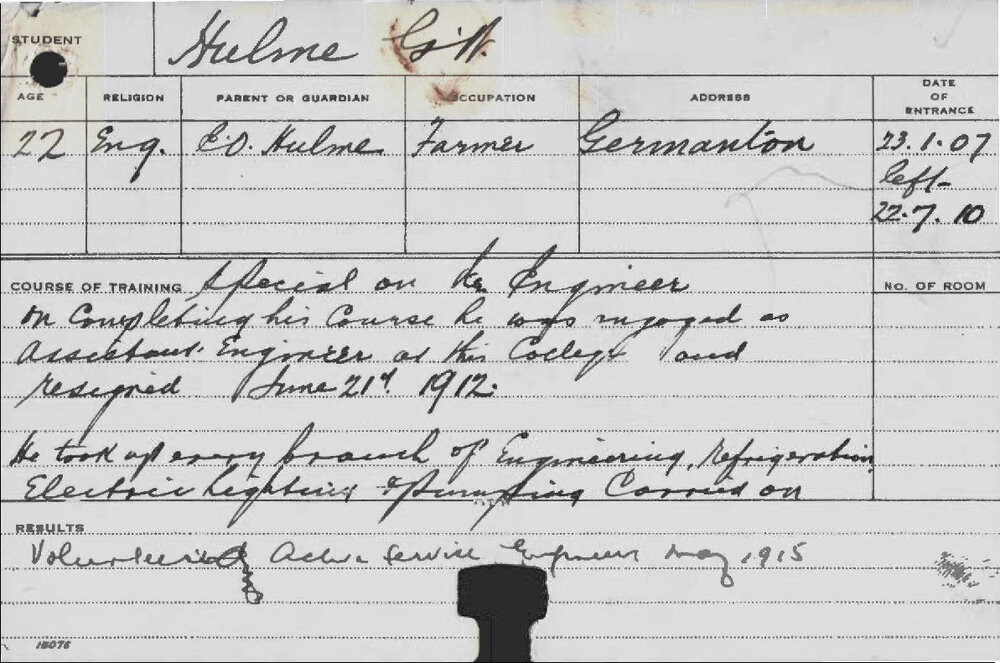 STUDENT Hulme G.W.
AGE RELIGION PARENT OR GUARDIAN OCCUPATION ADDRESS DATE OF ENTRANCE
22 Eng. E.O. Hulme Farmer Germanton 23.1.07
left
22.7.10
COURSE OF TRAINING Special on the Engineer
No. OF ROOM
On Completing his Course he was engaged as
Assistant Engineer at this College and
resigned June 21st 1912.
He took up every branch of Engineering, Refrigeration
Electric Lighting & Pumping Carried on
RESULTS
Volunteered Active Service Engineers May 1915
18076